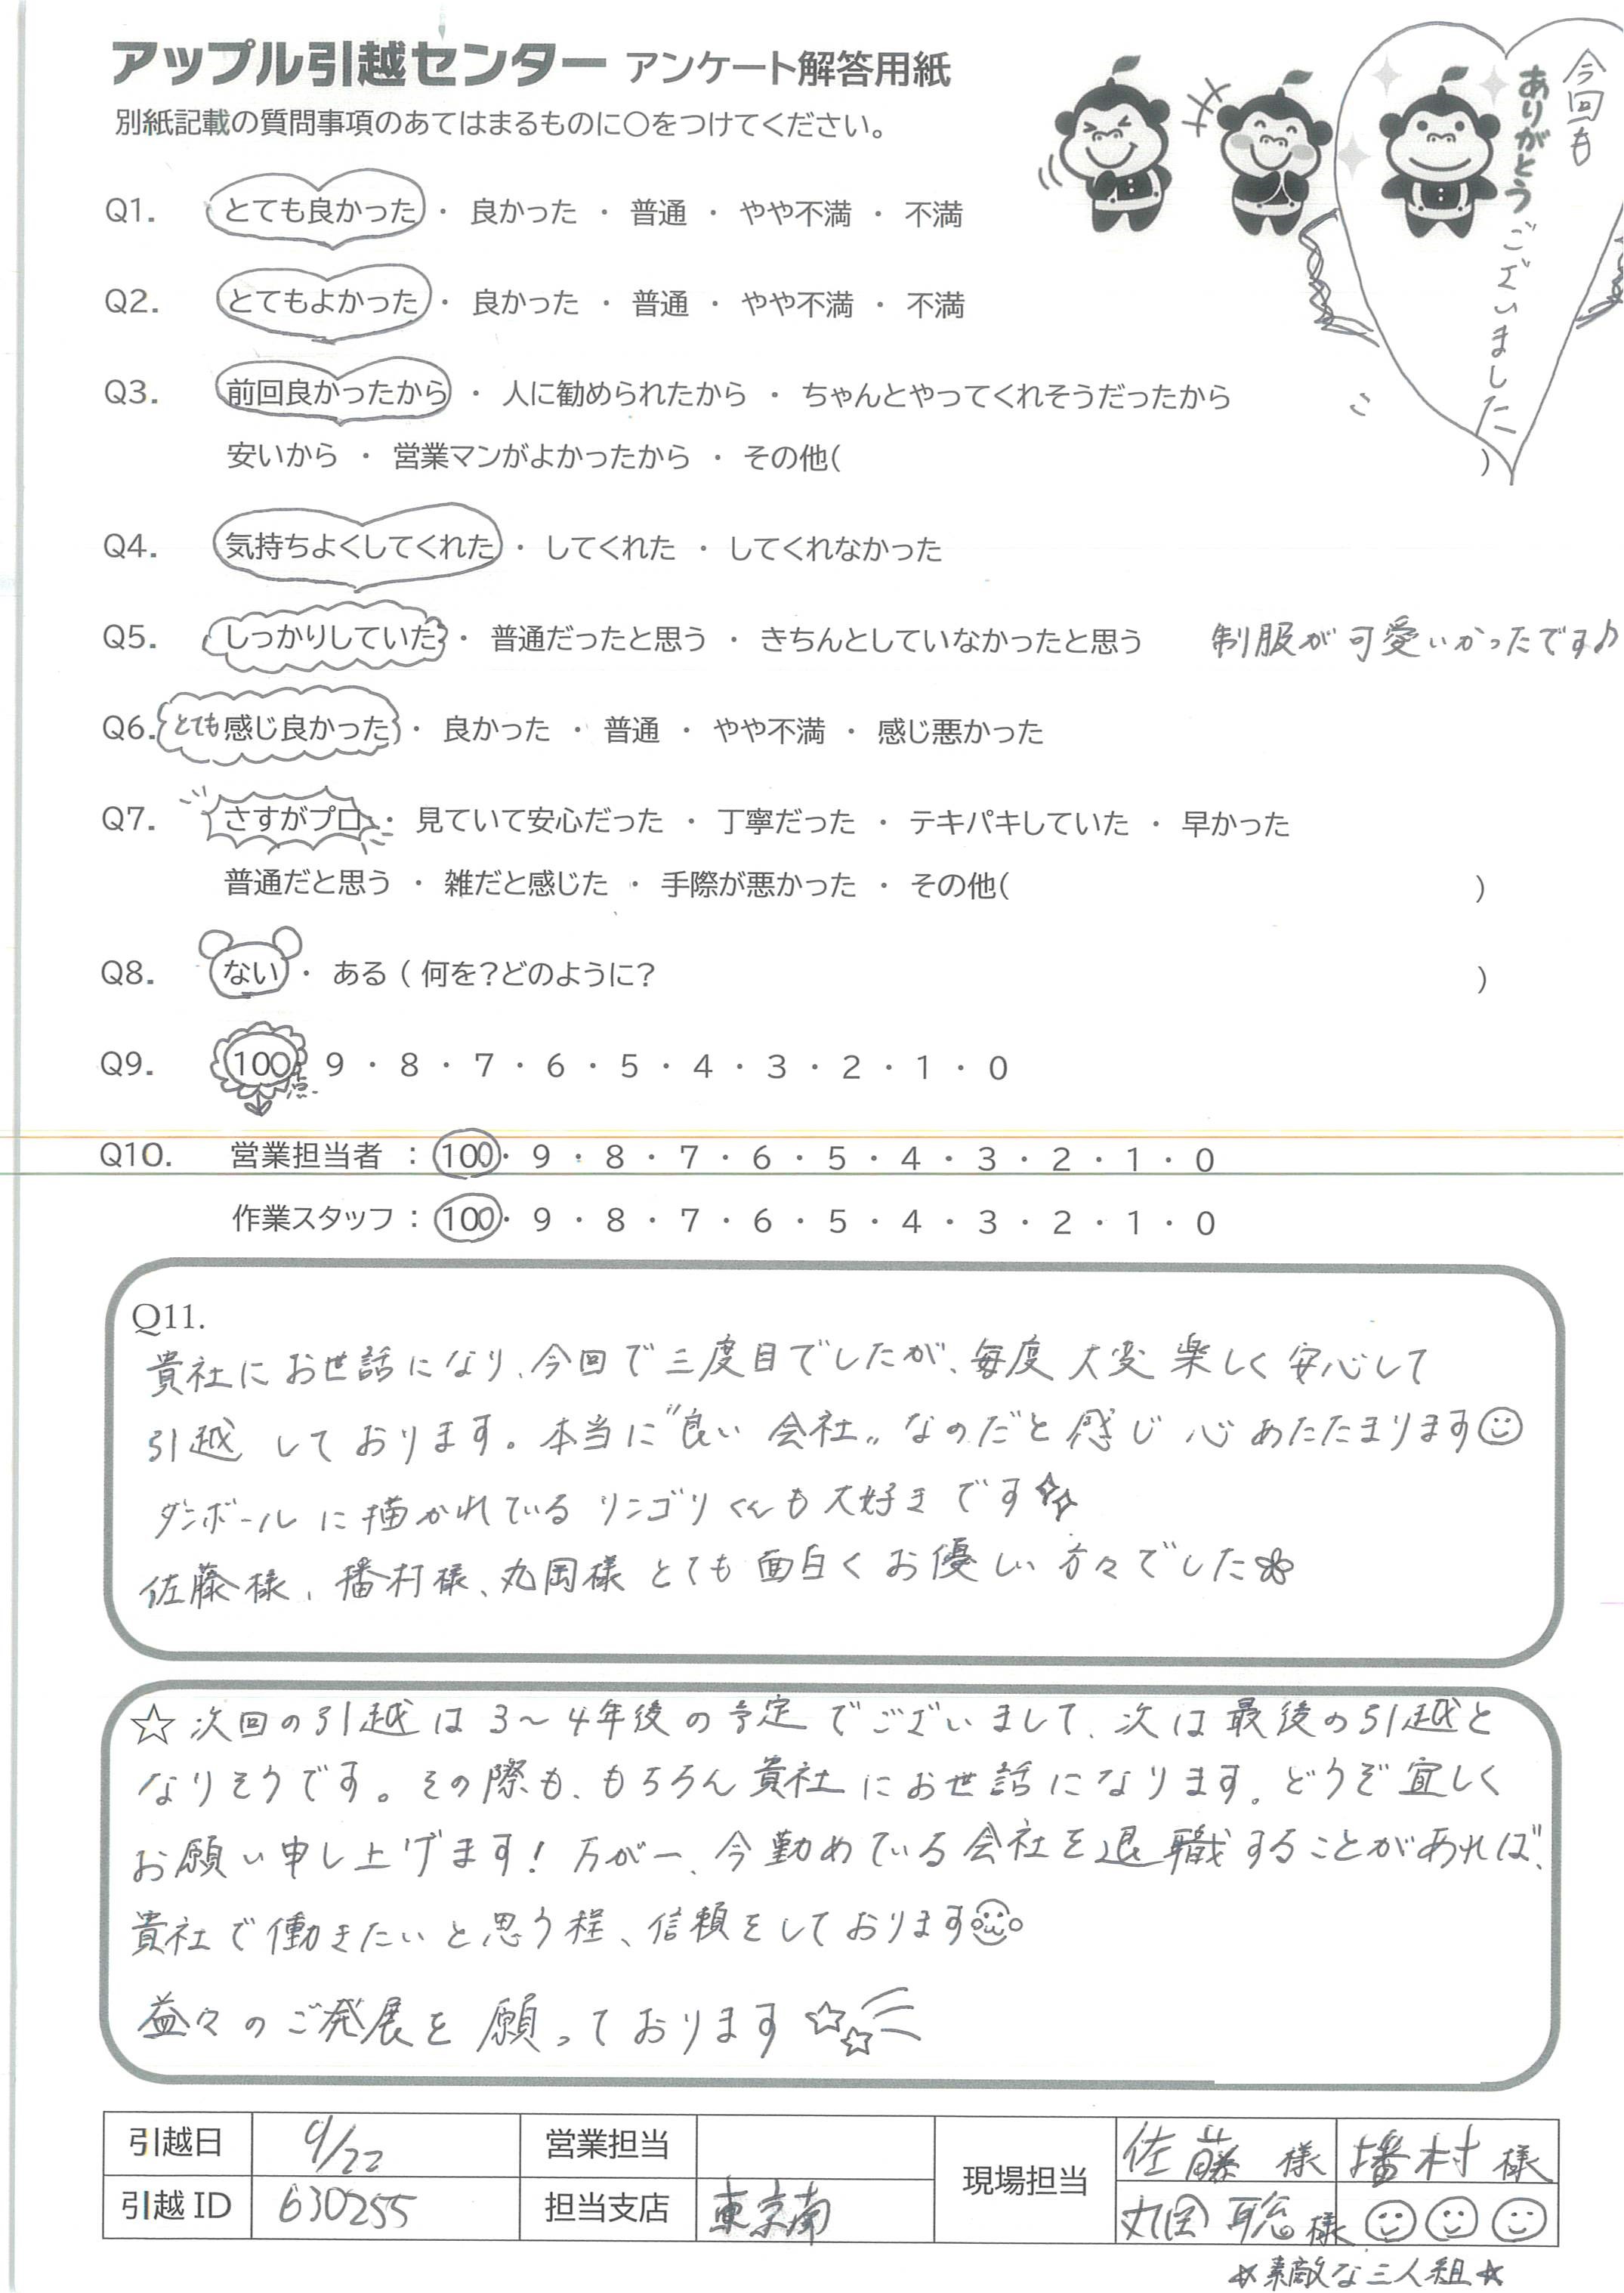 アップル引越センター アンケート解答用紙
別紙記載の質問事項のあてはまるものに○をつけてください。
今回も
ありがとうございました
Q1. とても良かった ・ 良かった ・ 普通 ・ やや不満 ・ 不満
Q2. とてもよかった ・ 良かった ・ 普通 ・ やや不満 ・ 不満
Q3. 前回良かったから ・ 人に勧められたから ・ ちゃんとやってくれそうだったから
安いから ・ 営業マンがよかったから ・ その他( )
Q4. 気持ちよくしてくれた ・ してくれた ・ してくれなかった
Q5. しっかりしていた ・ 普通だったと思う ・ きちんとしていなかったと思う 制服が可愛いかったです♪
Q6. とても感じ良かった ・ 良かった ・ 普通 ・ やや不満 ・ 感じ悪かった
Q7. さすがプロ ・ 見ていて安心だった ・ 丁寧だった ・ テキパキしていた ・ 早かった
普通だと思う ・ 雑だと感じた ・ 手際が悪かった ・ その他( )
Q8. ない ・ ある ( 何を?どのように? )
Q9. 100点 9 ・ 8 ・ 7 ・ 6 ・ 5 ・ 4 ・ 3 ・ 2 ・ 1 ・ 0
Q10. 営業担当者 : 100・ 9 ・ 8 ・ 7 ・ 6 ・ 5 ・ 4 ・ 3 ・ 2 ・ 1 ・ 0
作業スタッフ : 100・ 9 ・ 8 ・ 7 ・ 6 ・ 5 ・ 4 ・ 3 ・ 2 ・ 1 ・ 0
Q11.
貴社にお世話になり、今回で三度目でしたが、毎度大変楽しく安心して
引越しております。本当に〝良い会社〟なのだと感じ心あたたまります☺
ダンボールに描かれているリンゴリくんも大好きです☆
佐藤様、播村様、丸岡様とても面白くお優しい方々でした
☆次回の引越は3〜4年後の予定でございまして、次は最後の引越と
なりそうです。その際も、もちろん貴社にお世話になります。どうぞ宜しく
お願い申し上げます！万が一、今勤めている会社を退職することがあれば、
貴社で働きたいと思う程、信頼をしております
益々のご発展を願っております☆☆
引越日 9/22 営業担当 現場担当 佐藤様 播村様
引越ID 630255 担当支店 東京南 丸岡聡様 ☺☺☺
☆素敵な三人組☆